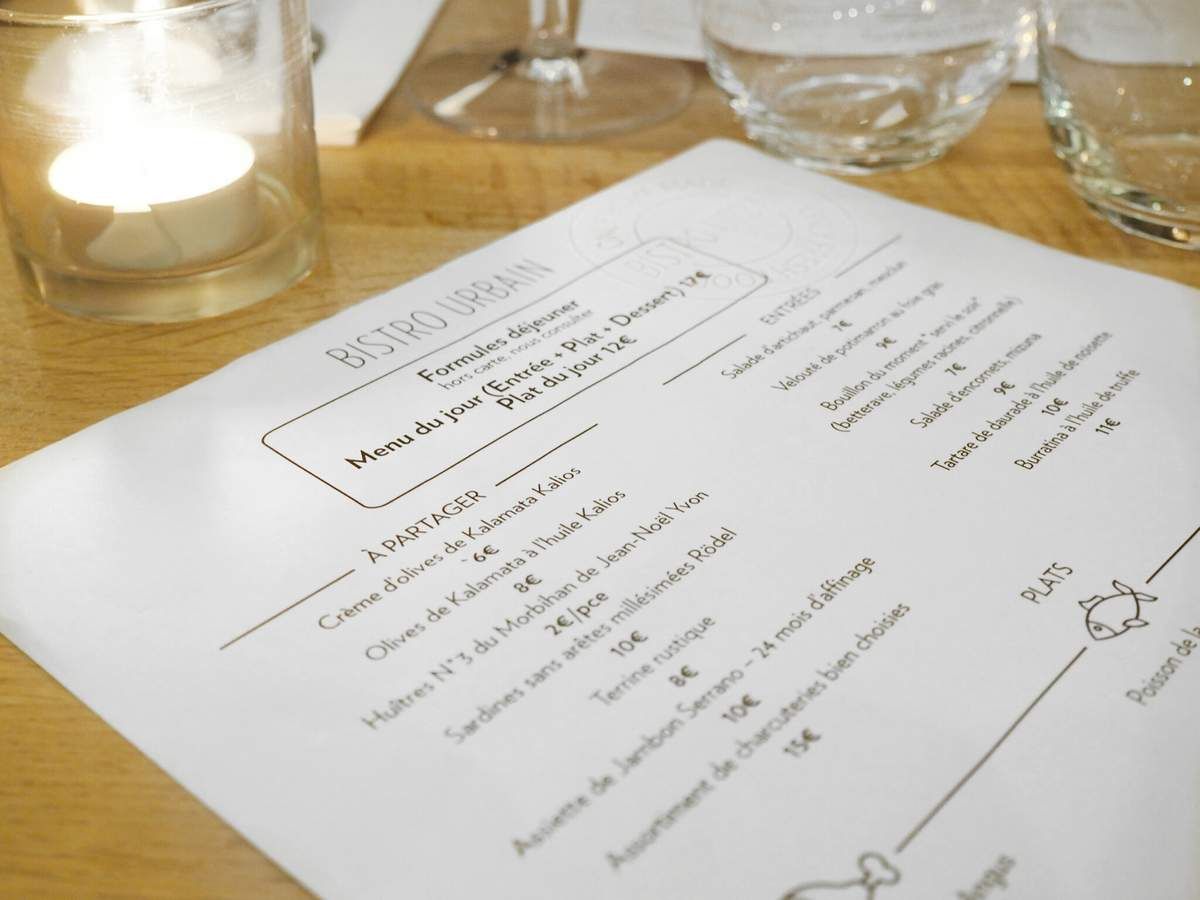 BISTRO URBAIN
Formules déjeuner
hors carte, nous consulter
Menu du jour (Entrée + Plat + Dessert) 17€
Plat du jour 12€
À PARTAGER
Crème d'olives de Kalamata Kalios
6€
Olives de Kalamata à l'huile Kalios
8€
Huîtres N°3 du Morbihan de Jean-Noël Yvon
2€/pce
Sardines sans arêtes millésimées Rödel
10€
Terrine rustique
8€
Assiette de Jambon Serrano – 24 mois d'affinage
10€
Assortiment de charcuteries bien choisies
15€
ENTRÉES
Salade d'artichaut, parmesan, mesclun
7€
Velouté de potimarron au foie gras
9€
Bouillon du moment "servi le soir"
(betterave, légumes racines, citronnelle)
7€
Salade d'encornets, mizuna
9€
Tartare de daurade à l'huile de noisette
10€
Burratina à l'huile de truffe
11€
PLATS
Poisson de